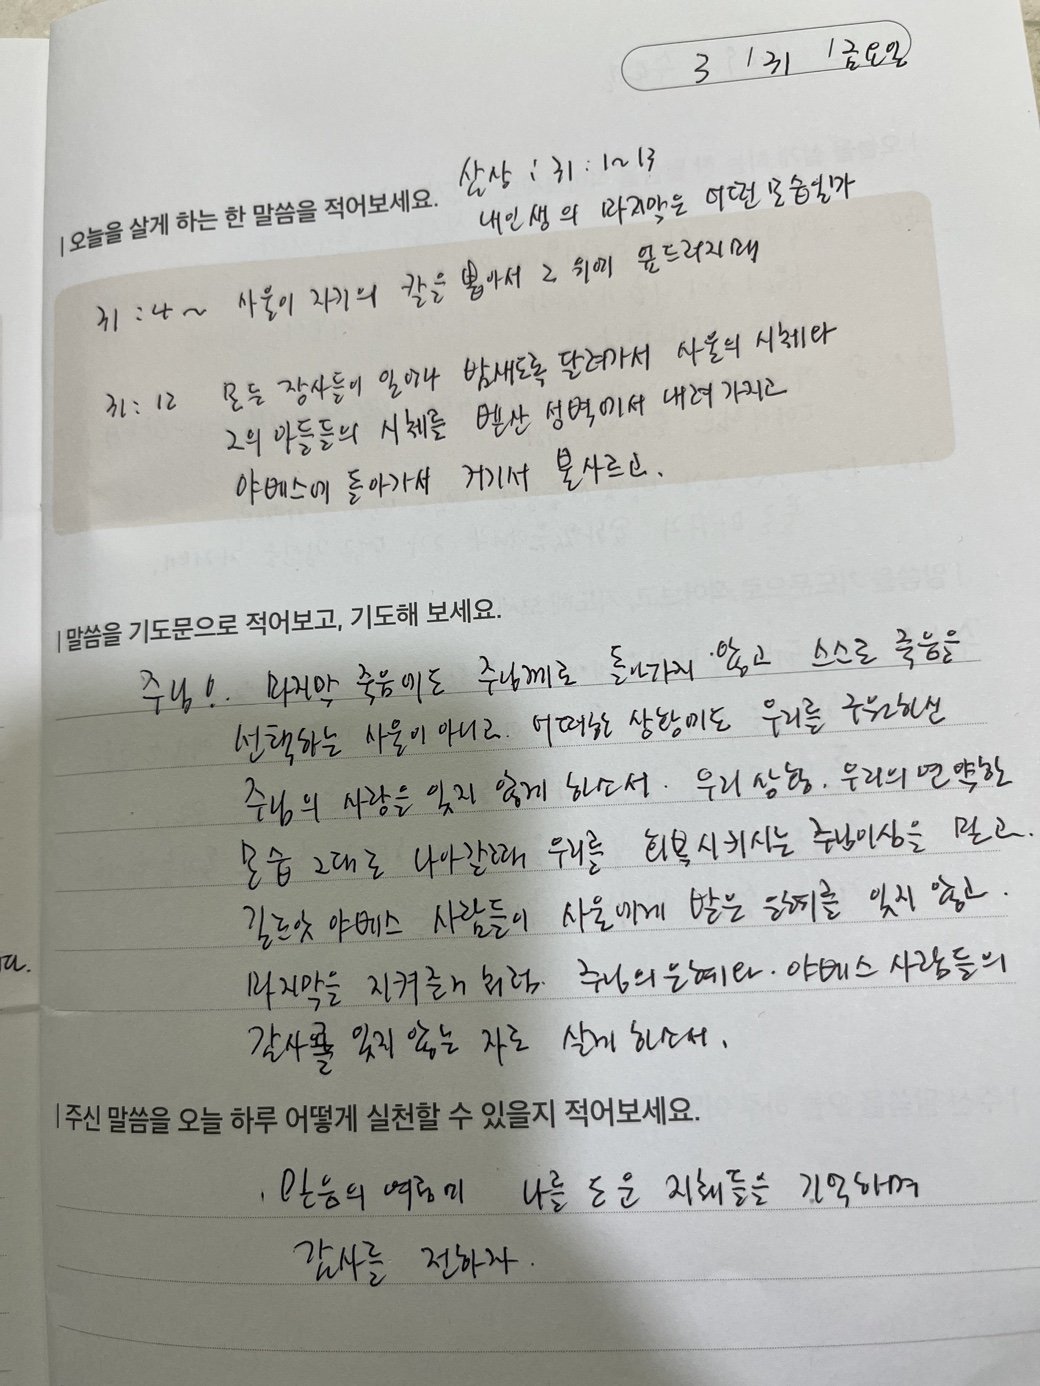 3 / 31 / 금요일
삼상 : 31 : 1~13
| 오늘을 살게 하는 한 말씀을 적어보세요.
내인생의 마지막은 어떤모습일가
31 : 4 ~ 사울이 자기의 칼을 뽑아서 그 위에 엎드러지매
31 : 12 모든 장사들이 일어나 밤새도록 달려가서 사울의 시체와
그의 아들들의 시체를 벧산 성벽에서 내려 가지고
야베스에 돌아가서 거기서 불사르고.
| 말씀을 기도문으로 적어보고, 기도해 보세요.
주님!. 마지막 죽음에도 주님께로 돌아가지 않고 스스로 죽음을
선택하는 사울이 아니고. 어떠한 상황이도 우리를 구원하신
주님의 사랑을 잊지 않게 하소서. 우리 상황. 우리의 연약한
모습 그대로 나아갈때 우리를 회복시키시는 주님이심을 믿고.
길르앗 야베스 사람들이 사울에게 받은 은혜를 잊지 않고.
마지막을 지켜준거 처럼. 주님의은혜와. 야베스 사람들의
감사를 잊지 않는 자로 살게 하소서.
| 주신 말씀을 오늘 하루 어떻게 실천할 수 있을지 적어보세요.
. 믿음의 여정이 나를 도운 지체들을 기억하며
감사를 전하자.
다.